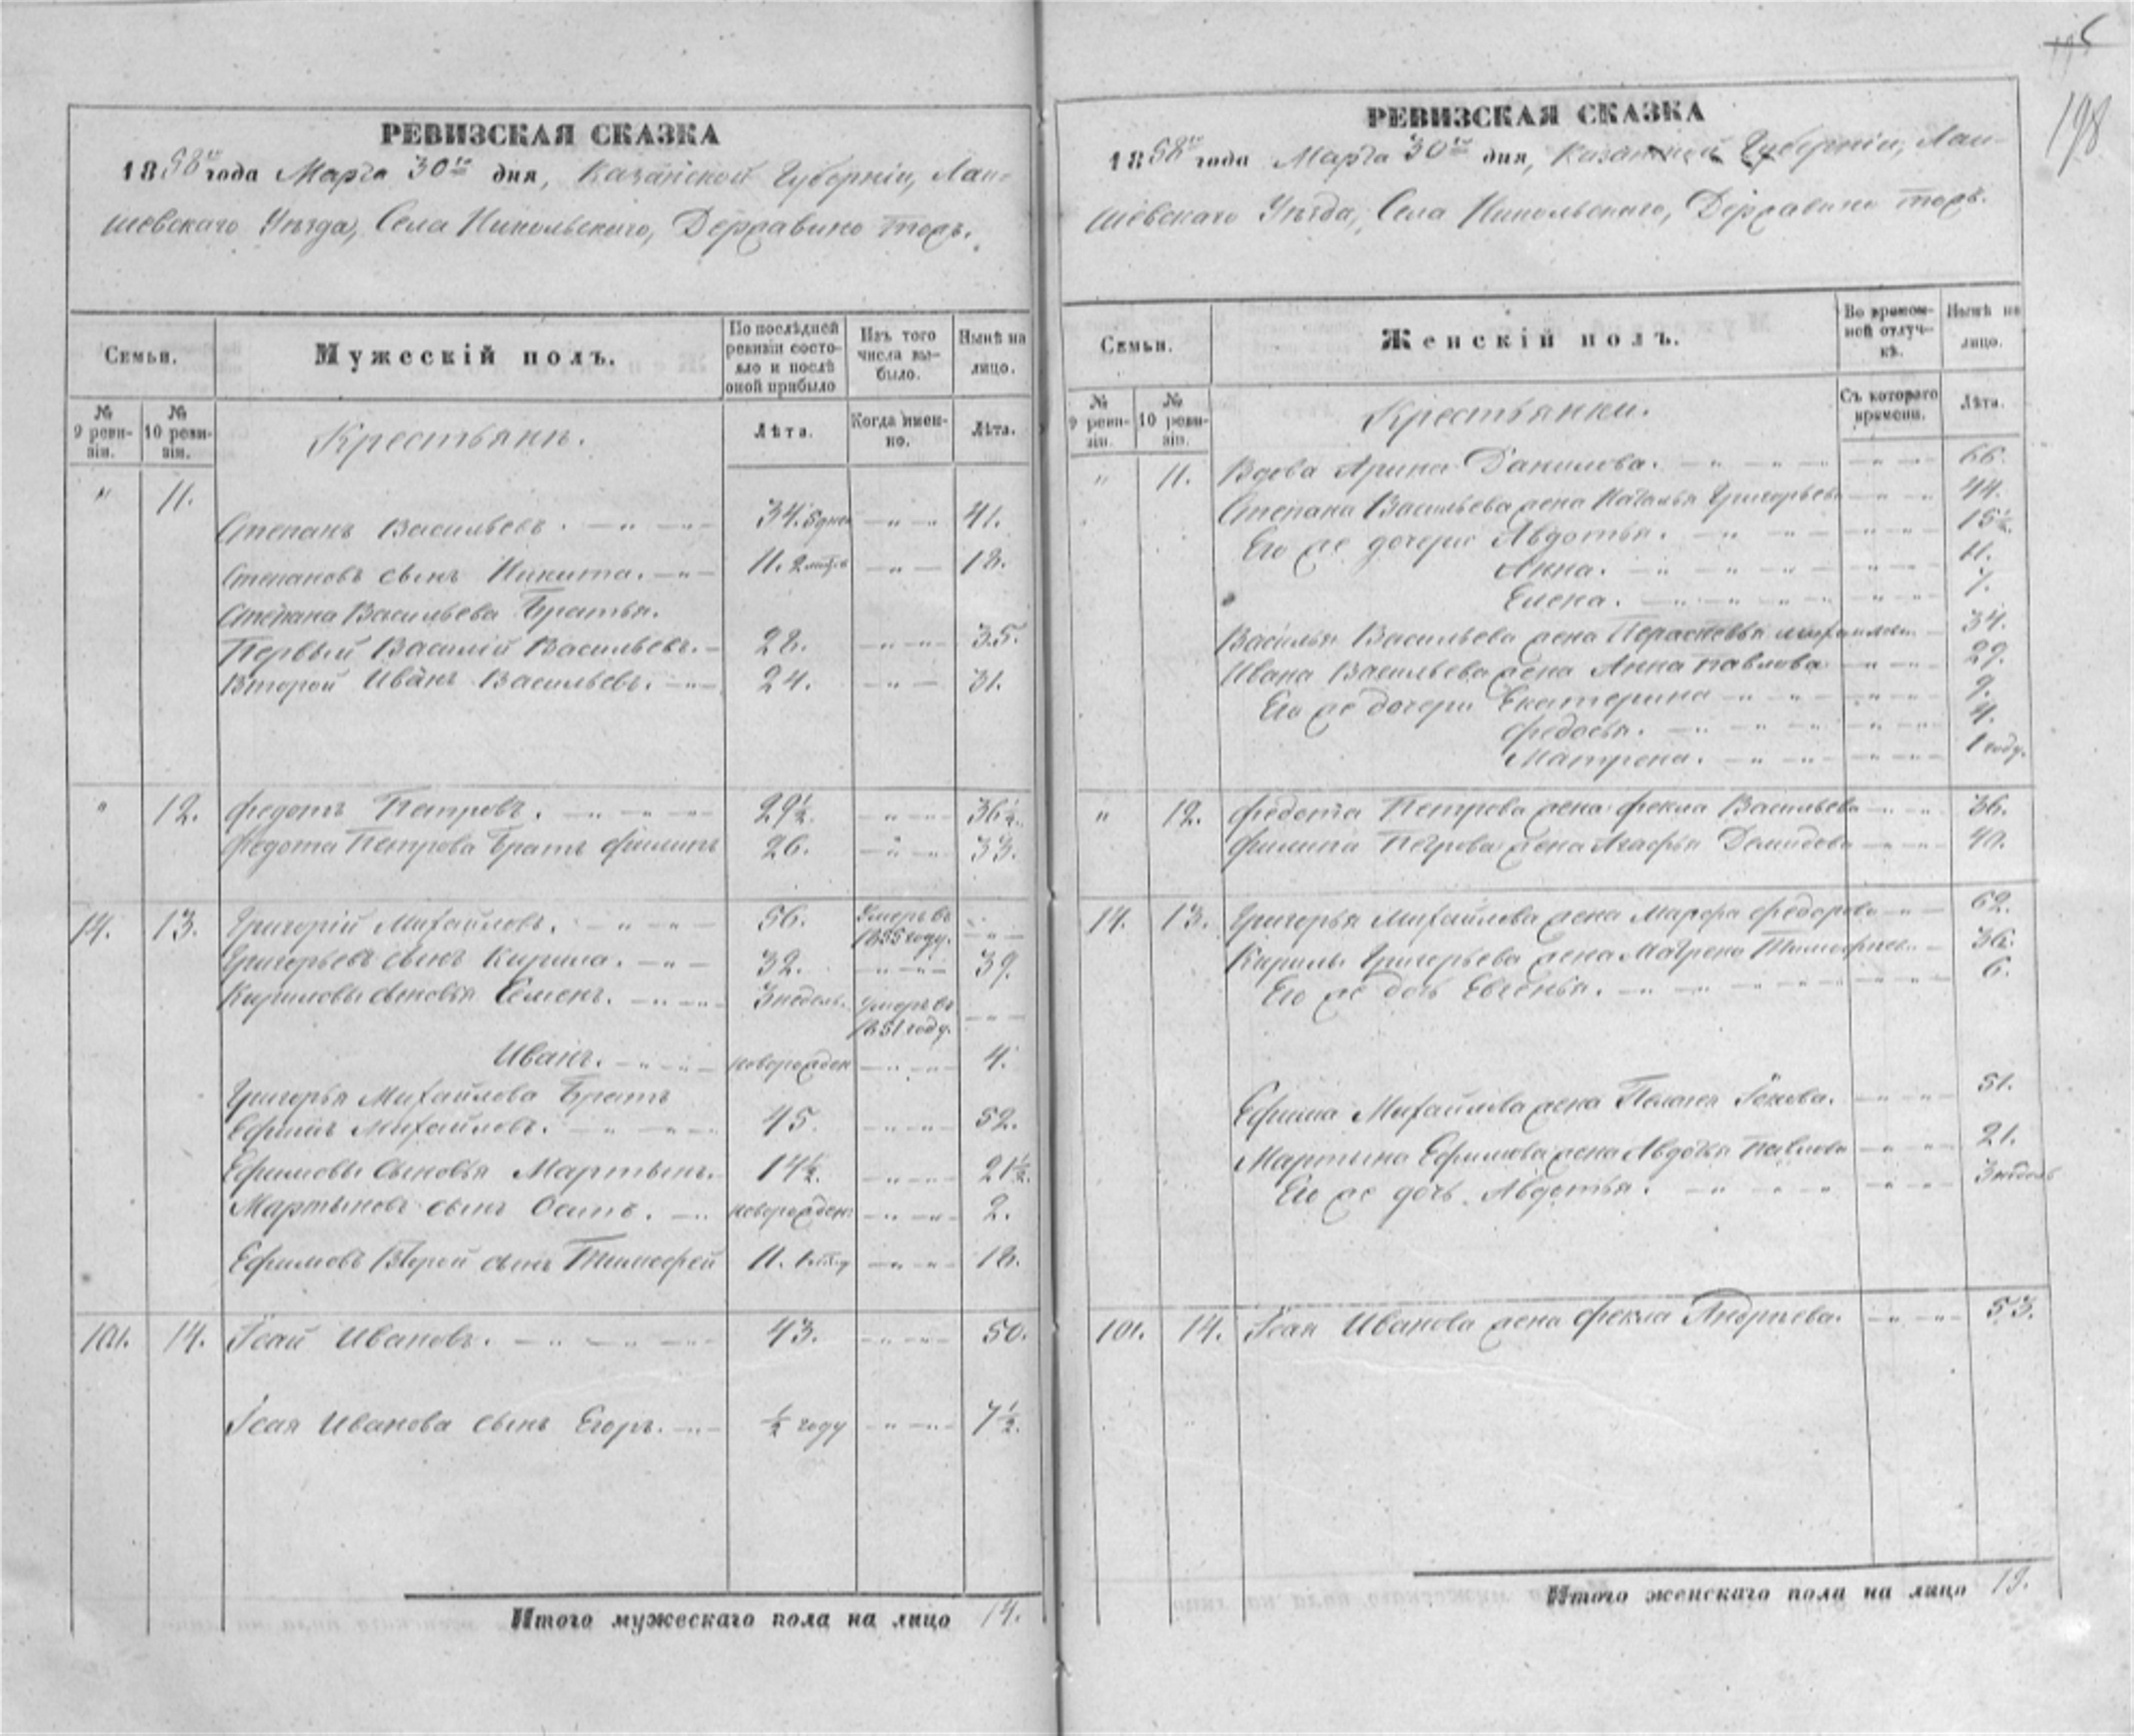 198
РЕВИЗСКАЯ СКАЗКА
1858го года Марта 30го дня, Казанской Губерніи, Лаи-
шевскаго Уѣзда, Села Никольскаго, Державино тожъ.
Семьи.
Мужескій полъ.
По послѣдней ревизіи состо-яло и послѣ оной прибыло
Изъ того числа вы-было.
Нынѣ на лицо.
№ 9 реви-зіи.
№ 10 реви-зіи.
Крестьяне.
Лѣта.
Когда имен-но.
Лѣта.
" 11.
Степанъ Васильевъ. 34. 41.
Степановъ сынъ Никита. 11. 18.
Степана Васильева Братья.
Первый Василій Васильевъ. 28. 35.
Второй Иванъ Васильевъ. 24. 31.
" 12. Федотъ Петровъ. 29½. 36½.
Федота Петрова Братъ Филипъ 26. 33.
14. 13. Григорій Михайловъ. 56. Умеръ въ 1855 году.
Григорьевъ сынъ Кирила. 32. 39.
Кириловы сыновья Семенъ. 3 недель. Умеръ въ 1851 году.
Иванъ. новорожден 4.
Григорья Михайлова Братъ
Ефимъ Михайловъ. 45. 52.
Ефимовы Сыновья Мартынъ. 14½. 21½.
Мартыновъ сынъ Осипъ. новорожден 2.
Ефимовъ Второй сынъ Тимофей 11. 18.
101. 14. Исай Ивановъ. 43. 50.
Исая Иванова сынъ Егоръ. ½ году 7½.
Итого мужескаго пола на лицо 14.
РЕВИЗСКАЯ СКАЗКА
1858го года Марта 30го дня, Казанской Губерніи, Лаи-
шевскаго Уѣзда, Села Никольскаго, Державино тожъ.
Семьи.
Женскій полъ.
Во времен-ной отлуч-кѣ.
Нынѣ на лицо.
№ 9 реви-зіи.
№ 10 реви-зіи.
Крестьянки.
Съ котораго времени.
Лѣта.
" 11. Вдова Арина Данилова. 66.
Степана Васильева жена Наталья Григорьева 44.
Его же дочери Авдотья. 15½.
Анна. 11.
Елена. 7.
Василья Васильева жена 34.
Ивана Васильева жена Анна Павлова 29.
Его же дочери Екатерина 9.
Федосья. 4.
Матрена. 1 году.
" 12. Федота Петрова жена Фекла Васильева 36.
Филипа Петрова жена Агафья Демидова 40.
14. 13. Григорья Михайлова жена Марфа Федорова 62.
Кирилы Григорьева жена Матрена 36.
Его же дочь Евгенья. 6.
Ефима Михайлова жена 51.
Мартына Ефимова жена Авдотья Павлова 21.
Его же дочь Авдотья. 3 недель
101. 14. Исая Иванова жена Фекла Андреева. 53.
Итого женскаго пола на лицо 19.